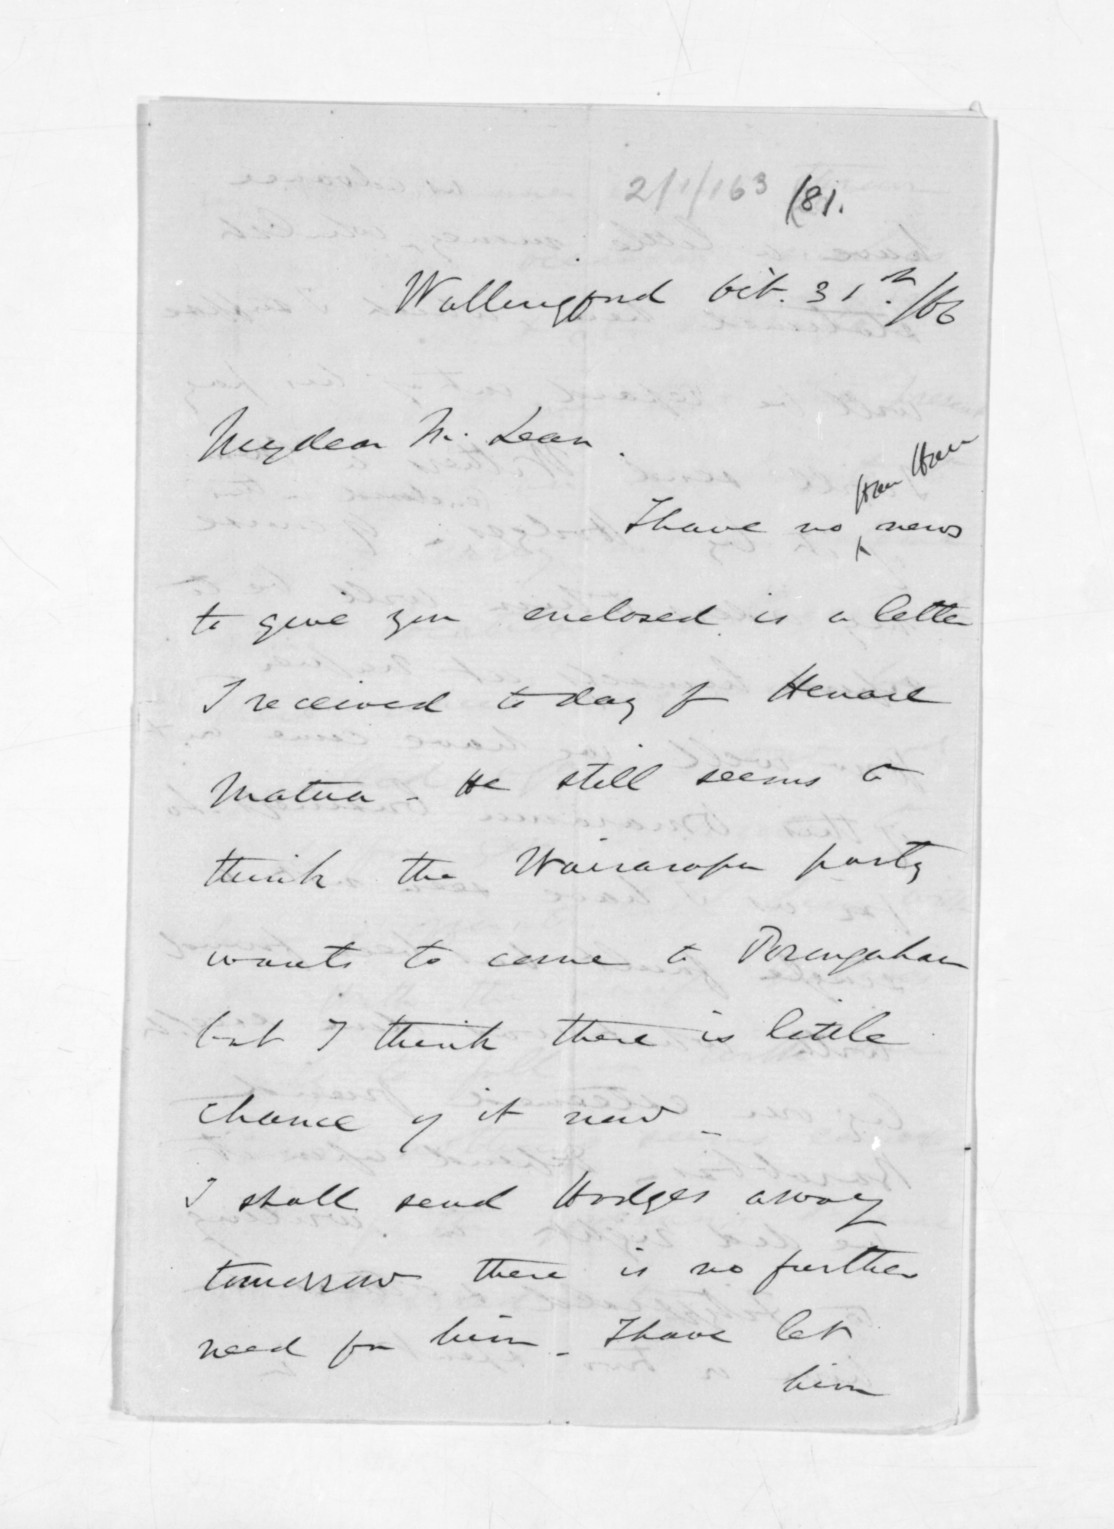 2/1/163 (81.
Wallingford Oct. 31st./66
My dear Mc. Lean.
Hau Hau
I have no ^ news
to give you enclosed is a letter
I received to day f Henare
Matua - He still seems to
think the Wairarapa party
wants to come to Porungahau
but I think there is little
chance of it now -
I shall send Hodges away
tomorrow there is no further
need for him - I have let
him